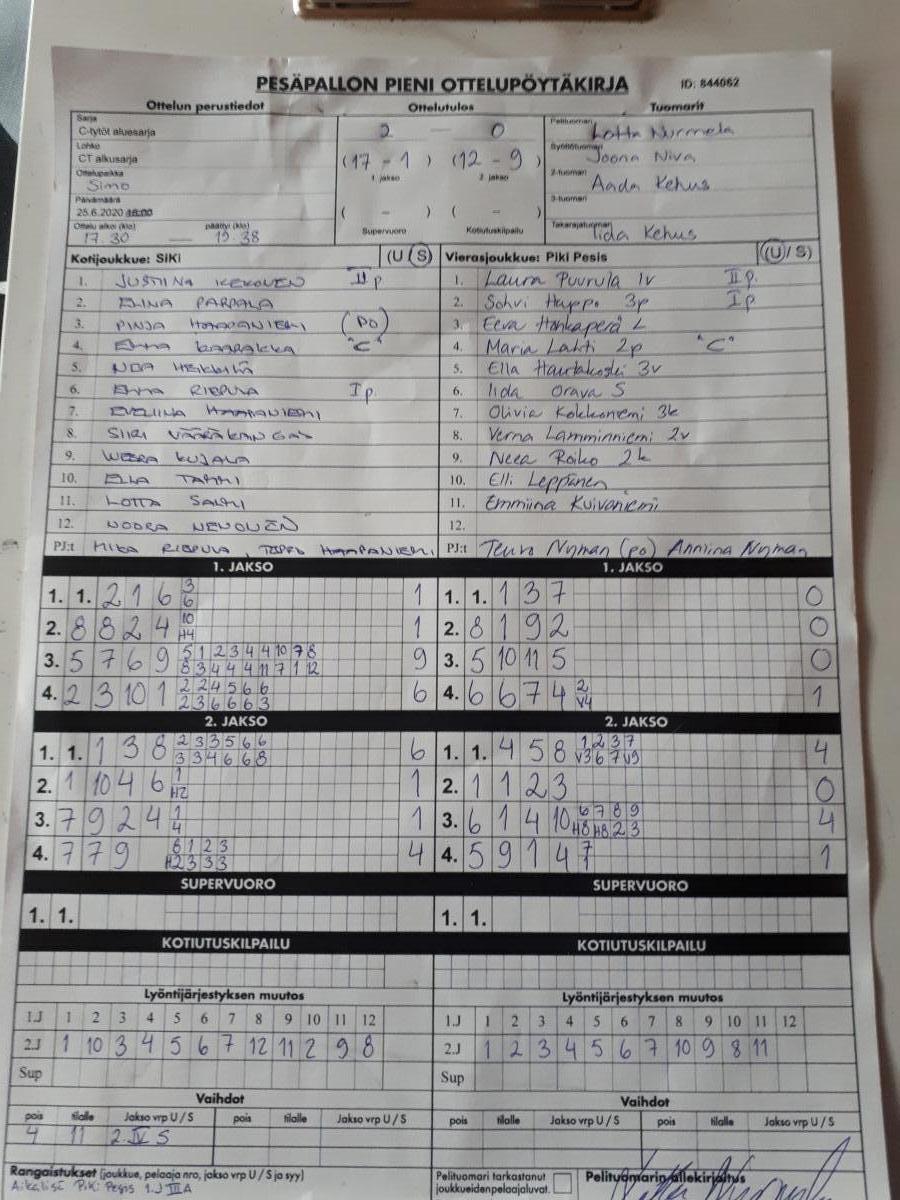 PESÄPALLON PIENI OTTELUPÖYTÄKIRJA ID: 844062
Ottelun perustiedot Ottelutulos Tuomarit
Sarja
C-tytöt aluesarja
Lohko
CT alkusarja
Ottelupaikka
Simo
Päivämäärä
25.6.2020 18:00
Ottelu alkoi (klo) päättyi (klo)
17.30 — 19.38
2 — 0
(17 - 1) (12 - 9)
1. jakso 2. jakso
( - ) ( - )
Supervuoro Kotiutuskilpailu
Pelituomari Lotta Nurmela
Syöttötuomari Joona Niva
2-tuomari Aada Kehus
3-tuomari
Takarajatuomari Iida Kehus
Kotijoukkue: SiKi (U S)
1. JUSTIINA KEKONEN II p
2. ELINA PARPALA
3. PINJA HAAPANIEMI (PO)
4. EMMA KAARAKKA "C"
5. NOA HEIKKILÄ
6. EMMA RIEPULA I p.
7. EVELIINA HAAPANIEMI
8. SIIRI VÄÄRÄKANGAS
9. WEERA KUJALA
10. ELLA TAMMI
11. LOTTA SALMI
12. NOORA NENONEN
PJ:t MIKA RIEPULA, TEPPO HAAPANIEMI
Vierasjoukkue: Piki Pesis (U / S)
1. Laura Puurula 1v II p.
2. Sohvi Huppo 3p I p
3. Eeva Honkaperä L
4. Maria Lahti 2p "C"
5. Ella Hautakoski 3v
6. Iida Orava S
7. Olivia Kokkoniemi 3k
8. Verna Lamminniemi 2v
9. Neea Roiko 2k
10. Elli Leppänen
11. Emmiina Kuivaniemi
12.
PJ:t Teuvo Nyman (po) Anniina Nyman
1. JAKSO 1. JAKSO
1. 1. 2 1 6 3 1
6
2. 8 8 2 4 10 1
H4
3. 5 7 6 9 5 1 2 3 4 4 10 7 8 9
8 3 4 4 4 11 7 1 12
4. 2 3 10 1 2 2 4 5 6 6 6
2 3 6 6 6 3
1. 1. 1 3 7 0
2. 8 1 9 2 0
3. 5 10 11 5 0
4. 6 6 7 4 2 1
V4
2. JAKSO 2. JAKSO
1. 1. 1 3 8 2 3 3 5 6 6 6
3 3 4 6 6 8
2. 1 10 4 6 1 1
H2
3. 7 9 2 4 1 1
4
4. 7 7 9 6 1 2 3 4
H2 3 3 3
1. 1. 4 5 8 1 2 3 7 4
V3 6 7 V9
2. 1 1 2 3 0
3. 6 1 4 10 6 7 8 9 4
H8 H8 2 3
4. 5 9 1 4 7 1
1
SUPERVUORO SUPERVUORO
1. 1. 1. 1.
KOTIUTUSKILPAILU KOTIUTUSKILPAILU
Lyöntijärjestyksen muutos Lyöntijärjestyksen muutos
1.J 1 2 3 4 5 6 7 8 9 10 11 12
2.J 1 10 3 4 5 6 7 12 11 2 9 8
Sup
1.J 1 2 3 4 5 6 7 8 9 10 11 12
2.J 1 2 3 4 5 6 7 10 9 8 11
Sup
Vaihdot Vaihdot
pois tilalle Jakso vrp U / S pois tilalle Jakso vrp U / S
4 11 2. IV S
pois tilalle Jakso vrp U / S pois tilalle Jakso vrp U / S
Rangaistukset (joukkue, pelaaja nro, jakso vrp U / S ja syy)
Aikalisä Piki Pesis 1.J III A
Pelituomari tarkastanut
joukkueidenpelaajaluvat.
Pelituomarin allekirjoitus